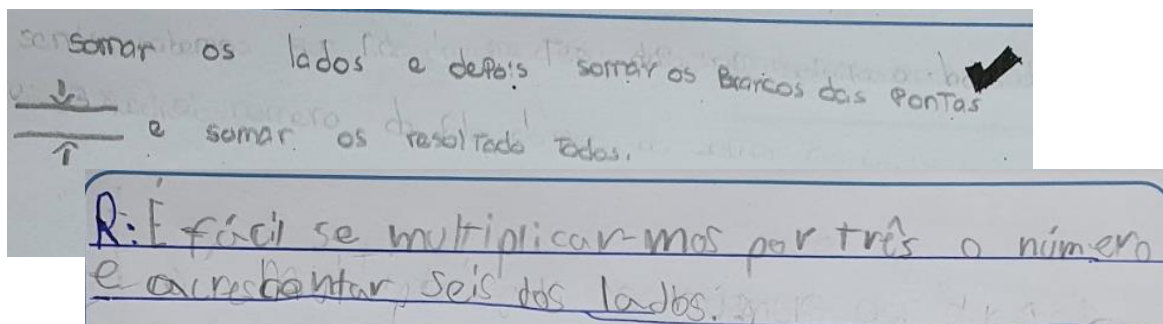 somar os lados e depois somar os Brancos das PonTas
e somar os resolTado Todos.
R: É fácil se multiplicar-mos por três o número
e acrescentar, seis dos lados.